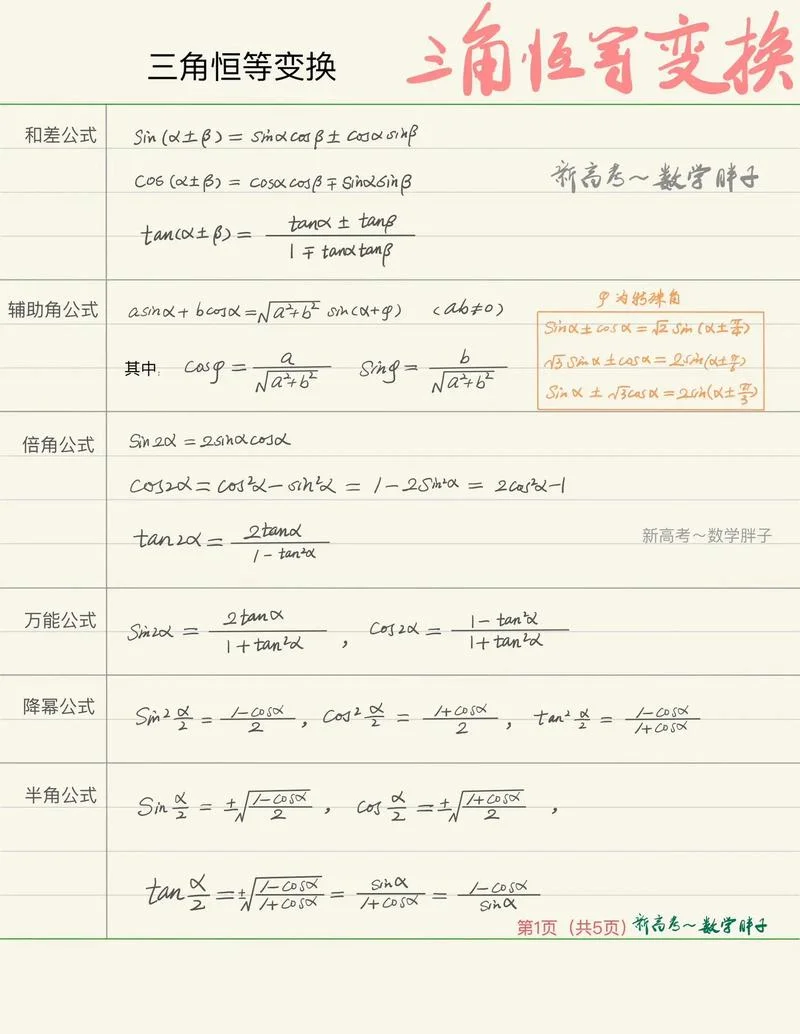 三角恒等变换
三角恒等变换
和差公式
Sin(α±β) = sinαcosβ ± cosαsinβ
cos(α±β) = cosαcosβ ∓ sinαsinβ
新高考～数学胖子
tan(α±β) = (tanα ± tanβ)/(1 ∓ tanαtanβ)
辅助角公式
asinα + bcosα = √(a²+b²) sin(α+φ) (ab≠0)
其中: cosφ = a/√(a²+b²) sinφ = b/√(a²+b²)
φ为特殊角
Sinα ± cosα = √2 sin(α±π/4)
√3 sinα ± cosα = 2sin(α±π/6)
Sinα ± √3cosα = 2sin(α±π/3)
倍角公式
Sin2α = 2sinαcosα
cos2α = cos²α − sin²α = 1 − 2sin²α = 2cos²α − 1
tan2α = 2tanα/(1 − tan²α)
新高考～数学胖子
万能公式
Sin2α = 2tanα/(1 + tan²α) , cos2α = (1 − tan²α)/(1 + tan²α)
降幂公式
Sin² α/2 = (1−cosα)/2 , cos² α/2 = (1+cosα)/2 , tan² α/2 = (1−cosα)/(1+cosα)
半角公式
Sin α/2 = ±√((1−cosα)/2) , cos α/2 = ±√((1+cosα)/2) ,
tan α/2 = ±√((1−cosα)/(1+cosα)) = sinα/(1+cosα) = (1−cosα)/sinα
第1页（共5页）新高考～数学胖子